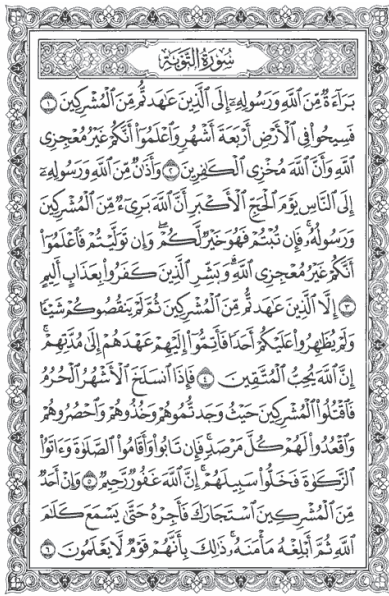 سُورَةُ التَّوْبَةِ
بَرَآءَةٌ مِّنَ ٱللَّهِ وَرَسُولِهِۦٓ إِلَى ٱلَّذِينَ عَٰهَدتُّم مِّنَ ٱلْمُشْرِكِينَ ١
فَسِيحُوا۟ فِى ٱلْأَرْضِ أَرْبَعَةَ أَشْهُرٍ وَٱعْلَمُوٓا۟ أَنَّكُمْ غَيْرُ مُعْجِزِى
ٱللَّهِ وَأَنَّ ٱللَّهَ مُخْزِى ٱلْكَٰفِرِينَ ٢ وَأَذَٰنٌ مِّنَ ٱللَّهِ وَرَسُولِهِۦٓ
إِلَى ٱلنَّاسِ يَوْمَ ٱلْحَجِّ ٱلْأَكْبَرِ أَنَّ ٱللَّهَ بَرِىٓءٌ مِّنَ ٱلْمُشْرِكِينَ
وَرَسُولُهُۥ فَإِن تُبْتُمْ فَهُوَ خَيْرٌ لَّكُمْ وَإِن تَوَلَّيْتُمْ فَٱعْلَمُوٓا۟
أَنَّكُمْ غَيْرُ مُعْجِزِى ٱللَّهِ وَبَشِّرِ ٱلَّذِينَ كَفَرُوا۟ بِعَذَابٍ أَلِيمٍ
٣ إِلَّا ٱلَّذِينَ عَٰهَدتُّم مِّنَ ٱلْمُشْرِكِينَ ثُمَّ لَمْ يَنقُصُوكُمْ شَيْـًٔا
وَلَمْ يُظَٰهِرُوا۟ عَلَيْكُمْ أَحَدًا فَأَتِمُّوٓا۟ إِلَيْهِمْ عَهْدَهُمْ إِلَىٰ مُدَّتِهِمْ
إِنَّ ٱللَّهَ يُحِبُّ ٱلْمُتَّقِينَ ٤ فَإِذَا ٱنسَلَخَ ٱلْأَشْهُرُ ٱلْحُرُمُ
فَٱقْتُلُوا۟ ٱلْمُشْرِكِينَ حَيْثُ وَجَدتُّمُوهُمْ وَخُذُوهُمْ وَٱحْصُرُوهُمْ
وَٱقْعُدُوا۟ لَهُمْ كُلَّ مَرْصَدٍ فَإِن تَابُوا۟ وَأَقَامُوا۟ ٱلصَّلَوٰةَ وَءَاتَوُا۟
ٱلزَّكَوٰةَ فَخَلُّوا۟ سَبِيلَهُمْ إِنَّ ٱللَّهَ غَفُورٌ رَّحِيمٌ ٥ وَإِنْ أَحَدٌ
مِّنَ ٱلْمُشْرِكِينَ ٱسْتَجَارَكَ فَأَجِرْهُ حَتَّىٰ يَسْمَعَ كَلَٰمَ
ٱللَّهِ ثُمَّ أَبْلِغْهُ مَأْمَنَهُۥ ذَٰلِكَ بِأَنَّهُمْ قَوْمٌ لَّا يَعْلَمُونَ ٦